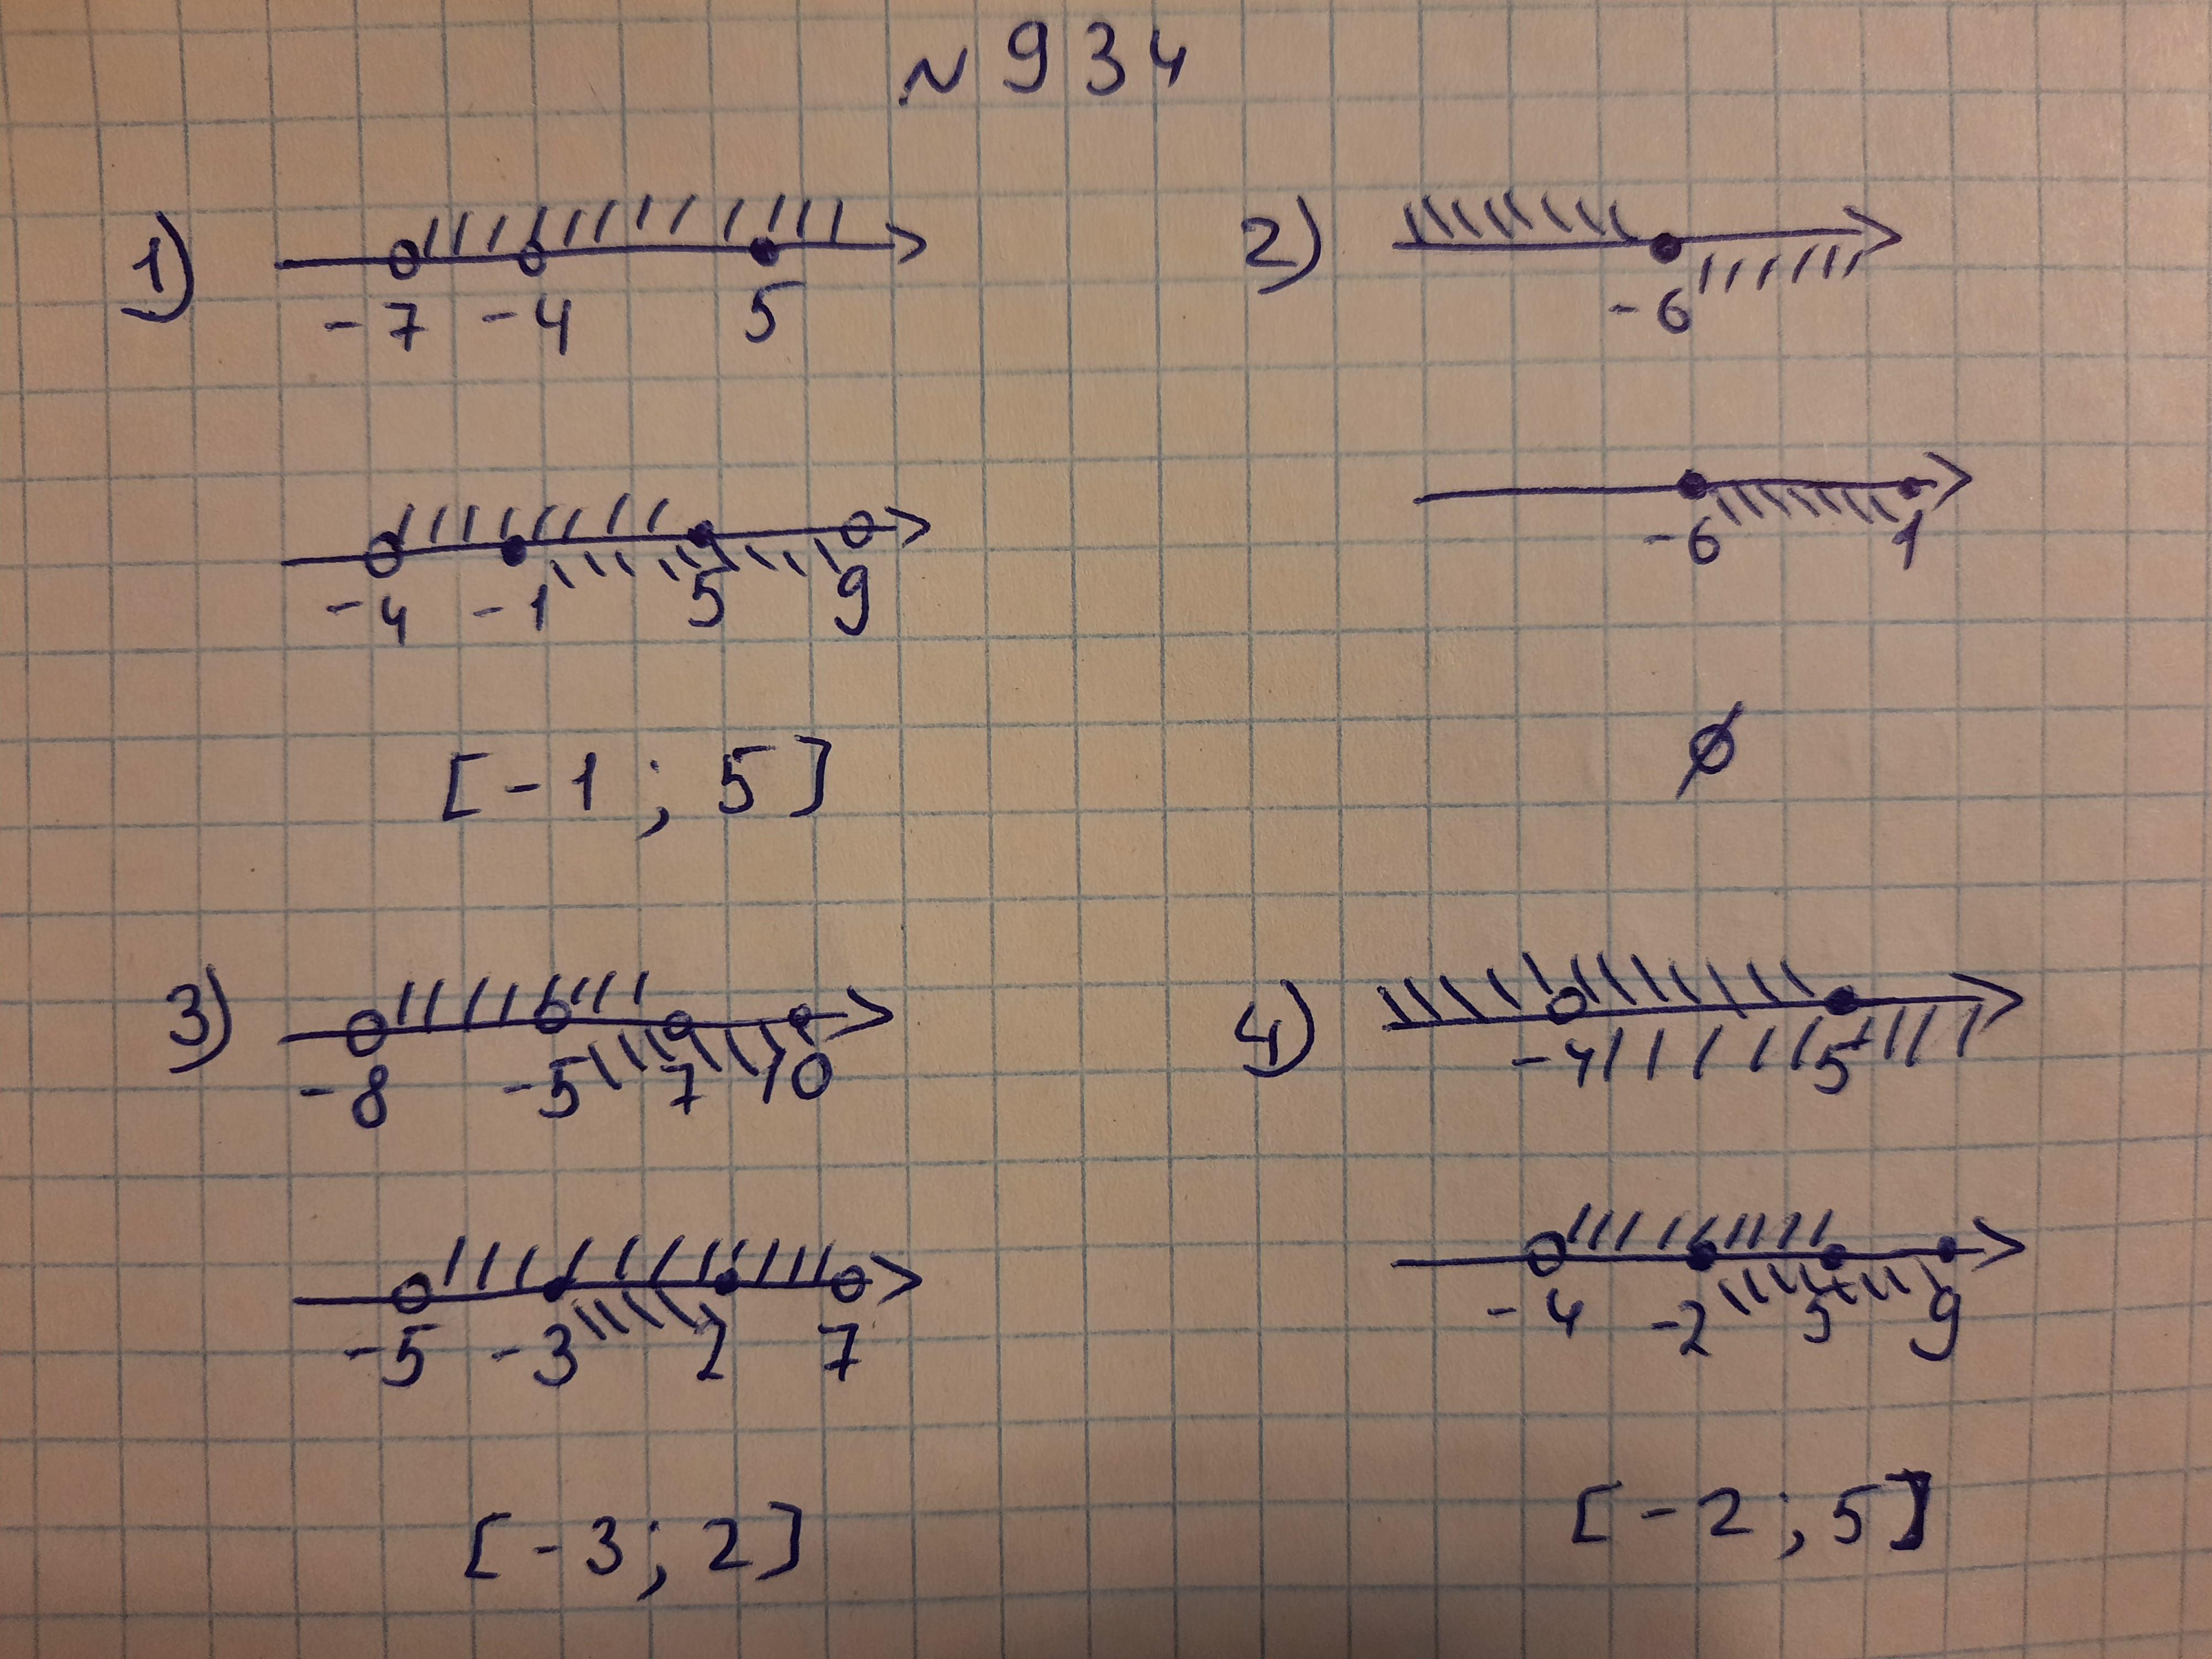 N 934
1)
-7 -4 5
2)
-6
-4 -1 5 9
-6 1
[-1; 5]
∅
3)
-8 -5 7 10
4)
-4 5
-5 -3 2 7
-4 -2 5 9
[-3; 2]
[-2; 5]